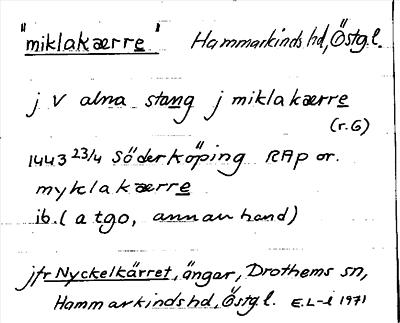 "miklakærre" Hammarkinds hd, Östgl.
j v alna stang j miklakærre
(r.G)
1443 23/4 Söderköping RAp or.
myklakærre
ib. (a tgo, annan hand)
jfr Nyckelkärret, ängar, Drothems sn,
Hammarkinds hd, Östgl. E.L-i 1971